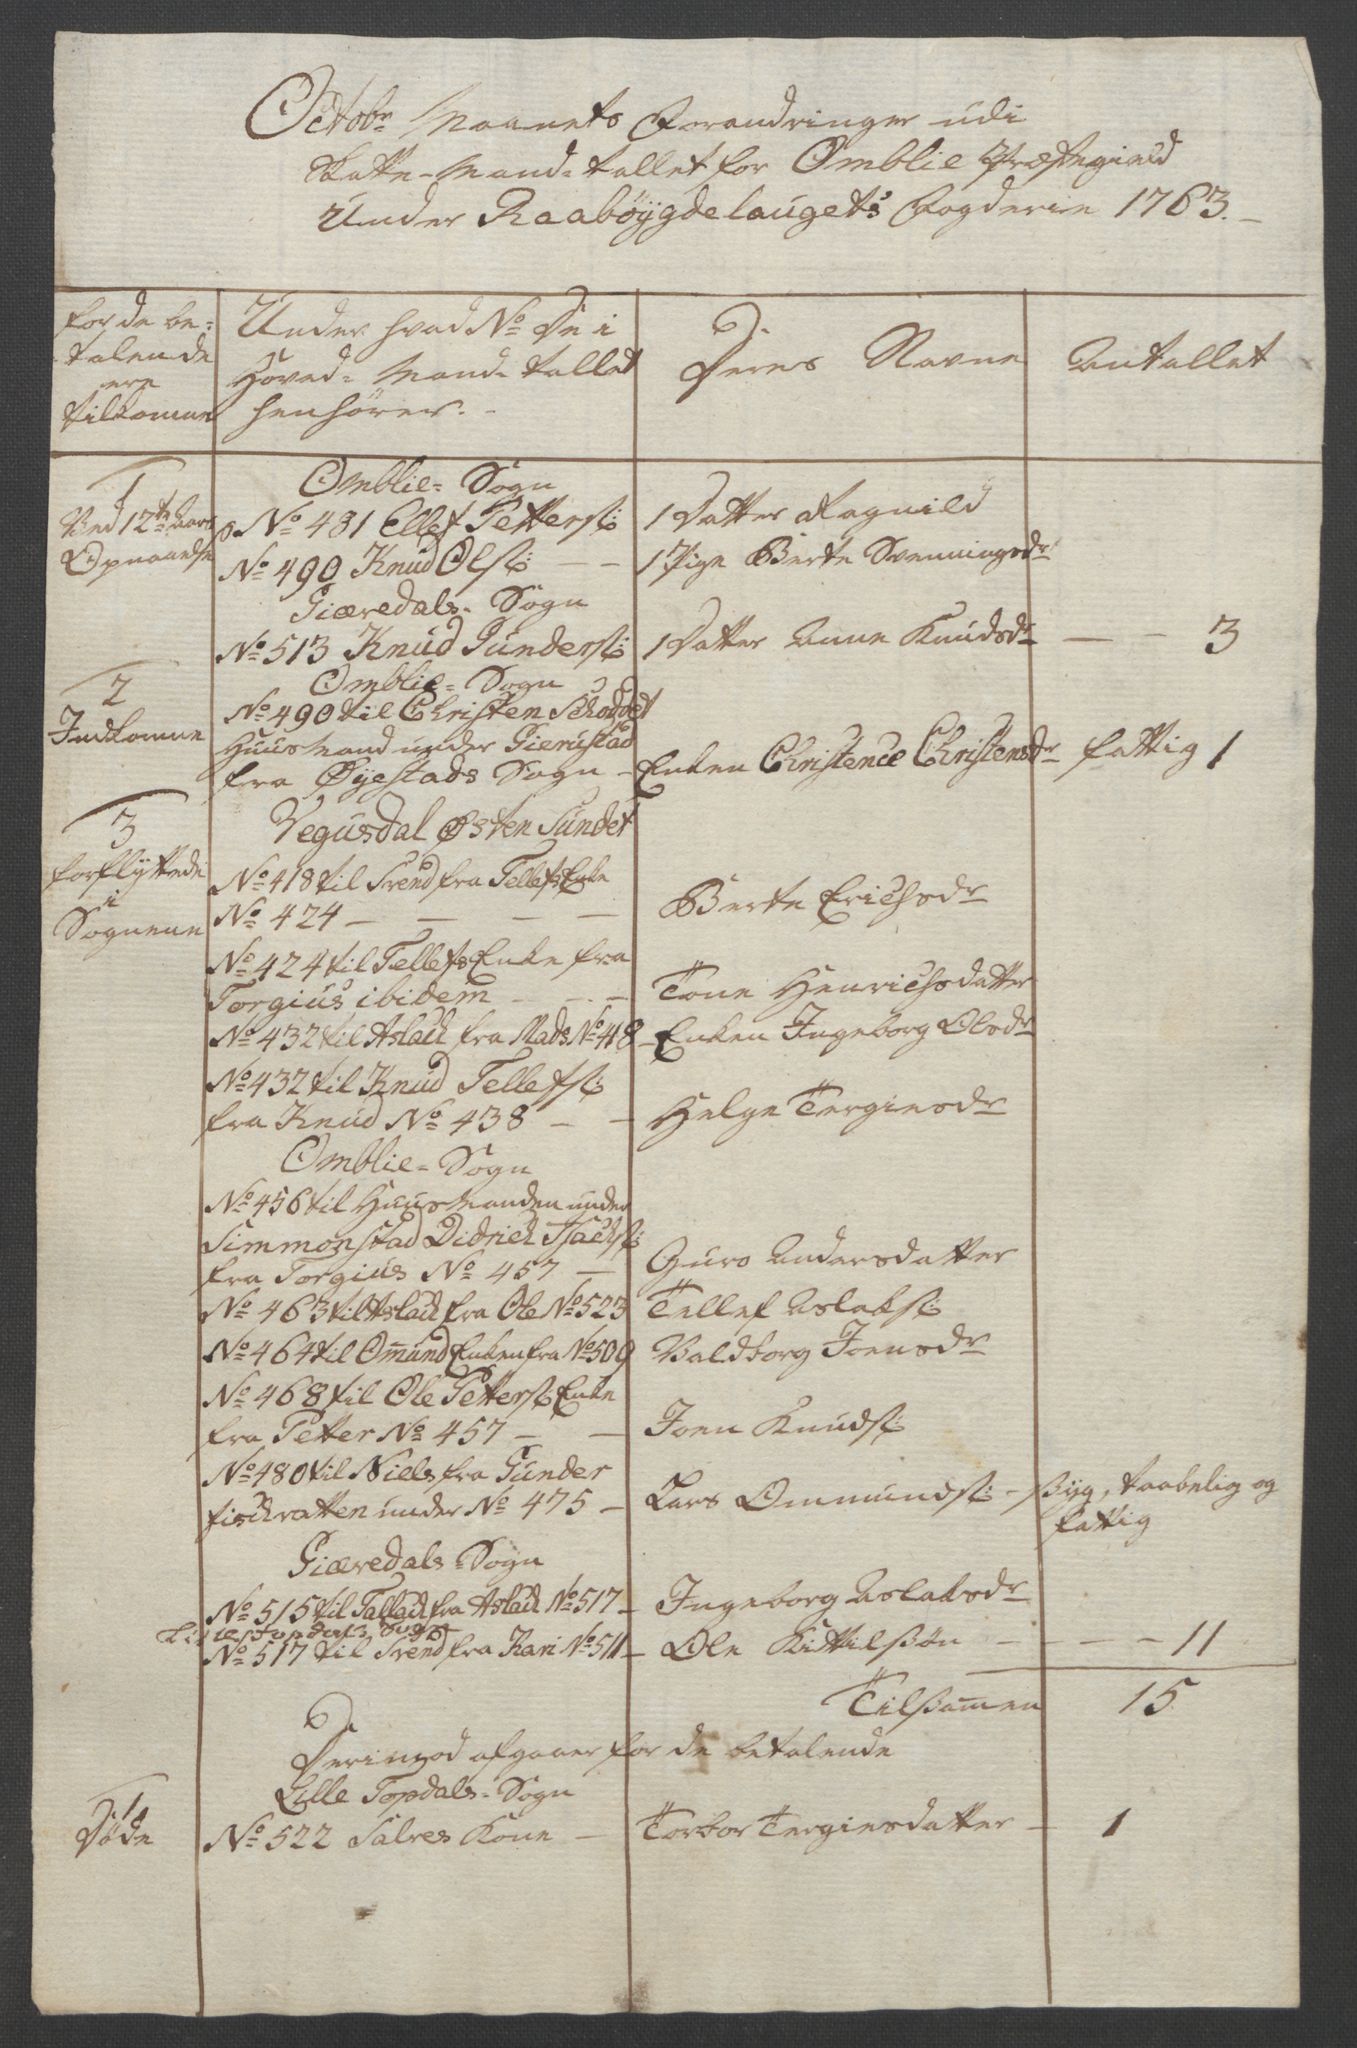 Octobr Maanets Forandringer udi
Skatte-Mand-tallet for Omblie Præstegield
Under Raabøygdelaugets Fogderie 1763.
for de be-
talende
ere
tilkomne
Under hvad No De i
Hoved-Mand-tallet
henhører.
Deres Navne
Antallet
1
Ved 12te Aars
Opnaaelse
Omblie-Sogn
No 481 Ellef Petters: 1 Datter Ragnild
No 490 Knud Ols: — — 1 Pige Berte Svenningsdr
Giæredals-Sogn
No 513 Knud Gunders: 1 Datter Anne Knudsdr — — 3
2
Indkomne
Omblie-Sogn
No 490 til Christen Schoddet
Huusmand under Gierustad
fra Øyestads Sogn - Enken Christence Christensdr fattig 1
3
forflyttede
i
Sognene
Vegusdal Østen Sundet
No 418 til Svend fra Tellefs Enke
No 424 — — — — Berte Erichsdr
No 424 til Tellefs Enke fra
Torgius ibidem - - - Tone Henrichsdatter
No 432 til Aslach fra Mads No 418 - Enken Ingeborg Olsdr
No 432 til Knud Tellefs:
fra Knud No 438 — — Helge Tergiesdr
Omblie-Sogn
No 456 til Huusmanden under
Simmonstad Didrich Isachs:
fra Torgius No 457 — Guro Andersdatter
No 463 til Aslach fra Ole No 523 Tellef Aslaks:
No 464 til Omund Enken fra No 509 Valdborg Joensdr
No 468 til Ole Petters: Enke
fra Petter No 457 — — Joen Knuds:
No 480 til Niels fra Gunder
fischvatten under No 475 - Lars Ommunds: - Syg, taabelig og
fattig
Giæredals-Sogn
No 515 til Tallach fra Aslach No 517 - Ingeborg Aslaksdr
Lille Topdals Sogn
No 517 til Svend fra Kari No 511 - Ole Kittilsøn — — — 11
Tilsamen 15
Derimod afgaaer for de betalende
Lille Topdals-Sogn
1
Døde
No 522 Salves Kone — Torbor Tergiesdatter — 1